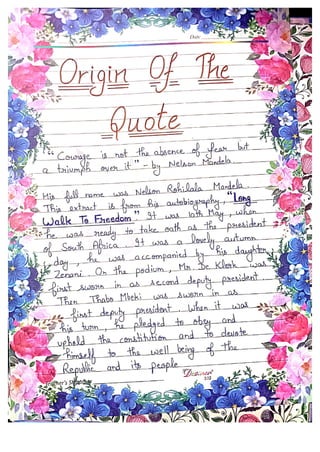 Date
Origin Of The
Quote
"Courage is not the absence of fear but
a triumph over it" - by Nelson Mandela
His full name was Nelson Rohilala Mandela
This extract is from his autobiography, "Long
Walk To Freedom" It was 10th May, when
he was ready to take oath as the president
of South Africa. It was a lovely autumn
day, he was accompanied by his daughter
Zenani. On the podium, Mr. De Klerk was
first sworn in as second deputy president
Then Thabo Mbeki was sworn in as
first deputy president. When it was
his turn, he pledged to obey and
uphold the constitution and to devote
himself to the well being of the
Republic and its people